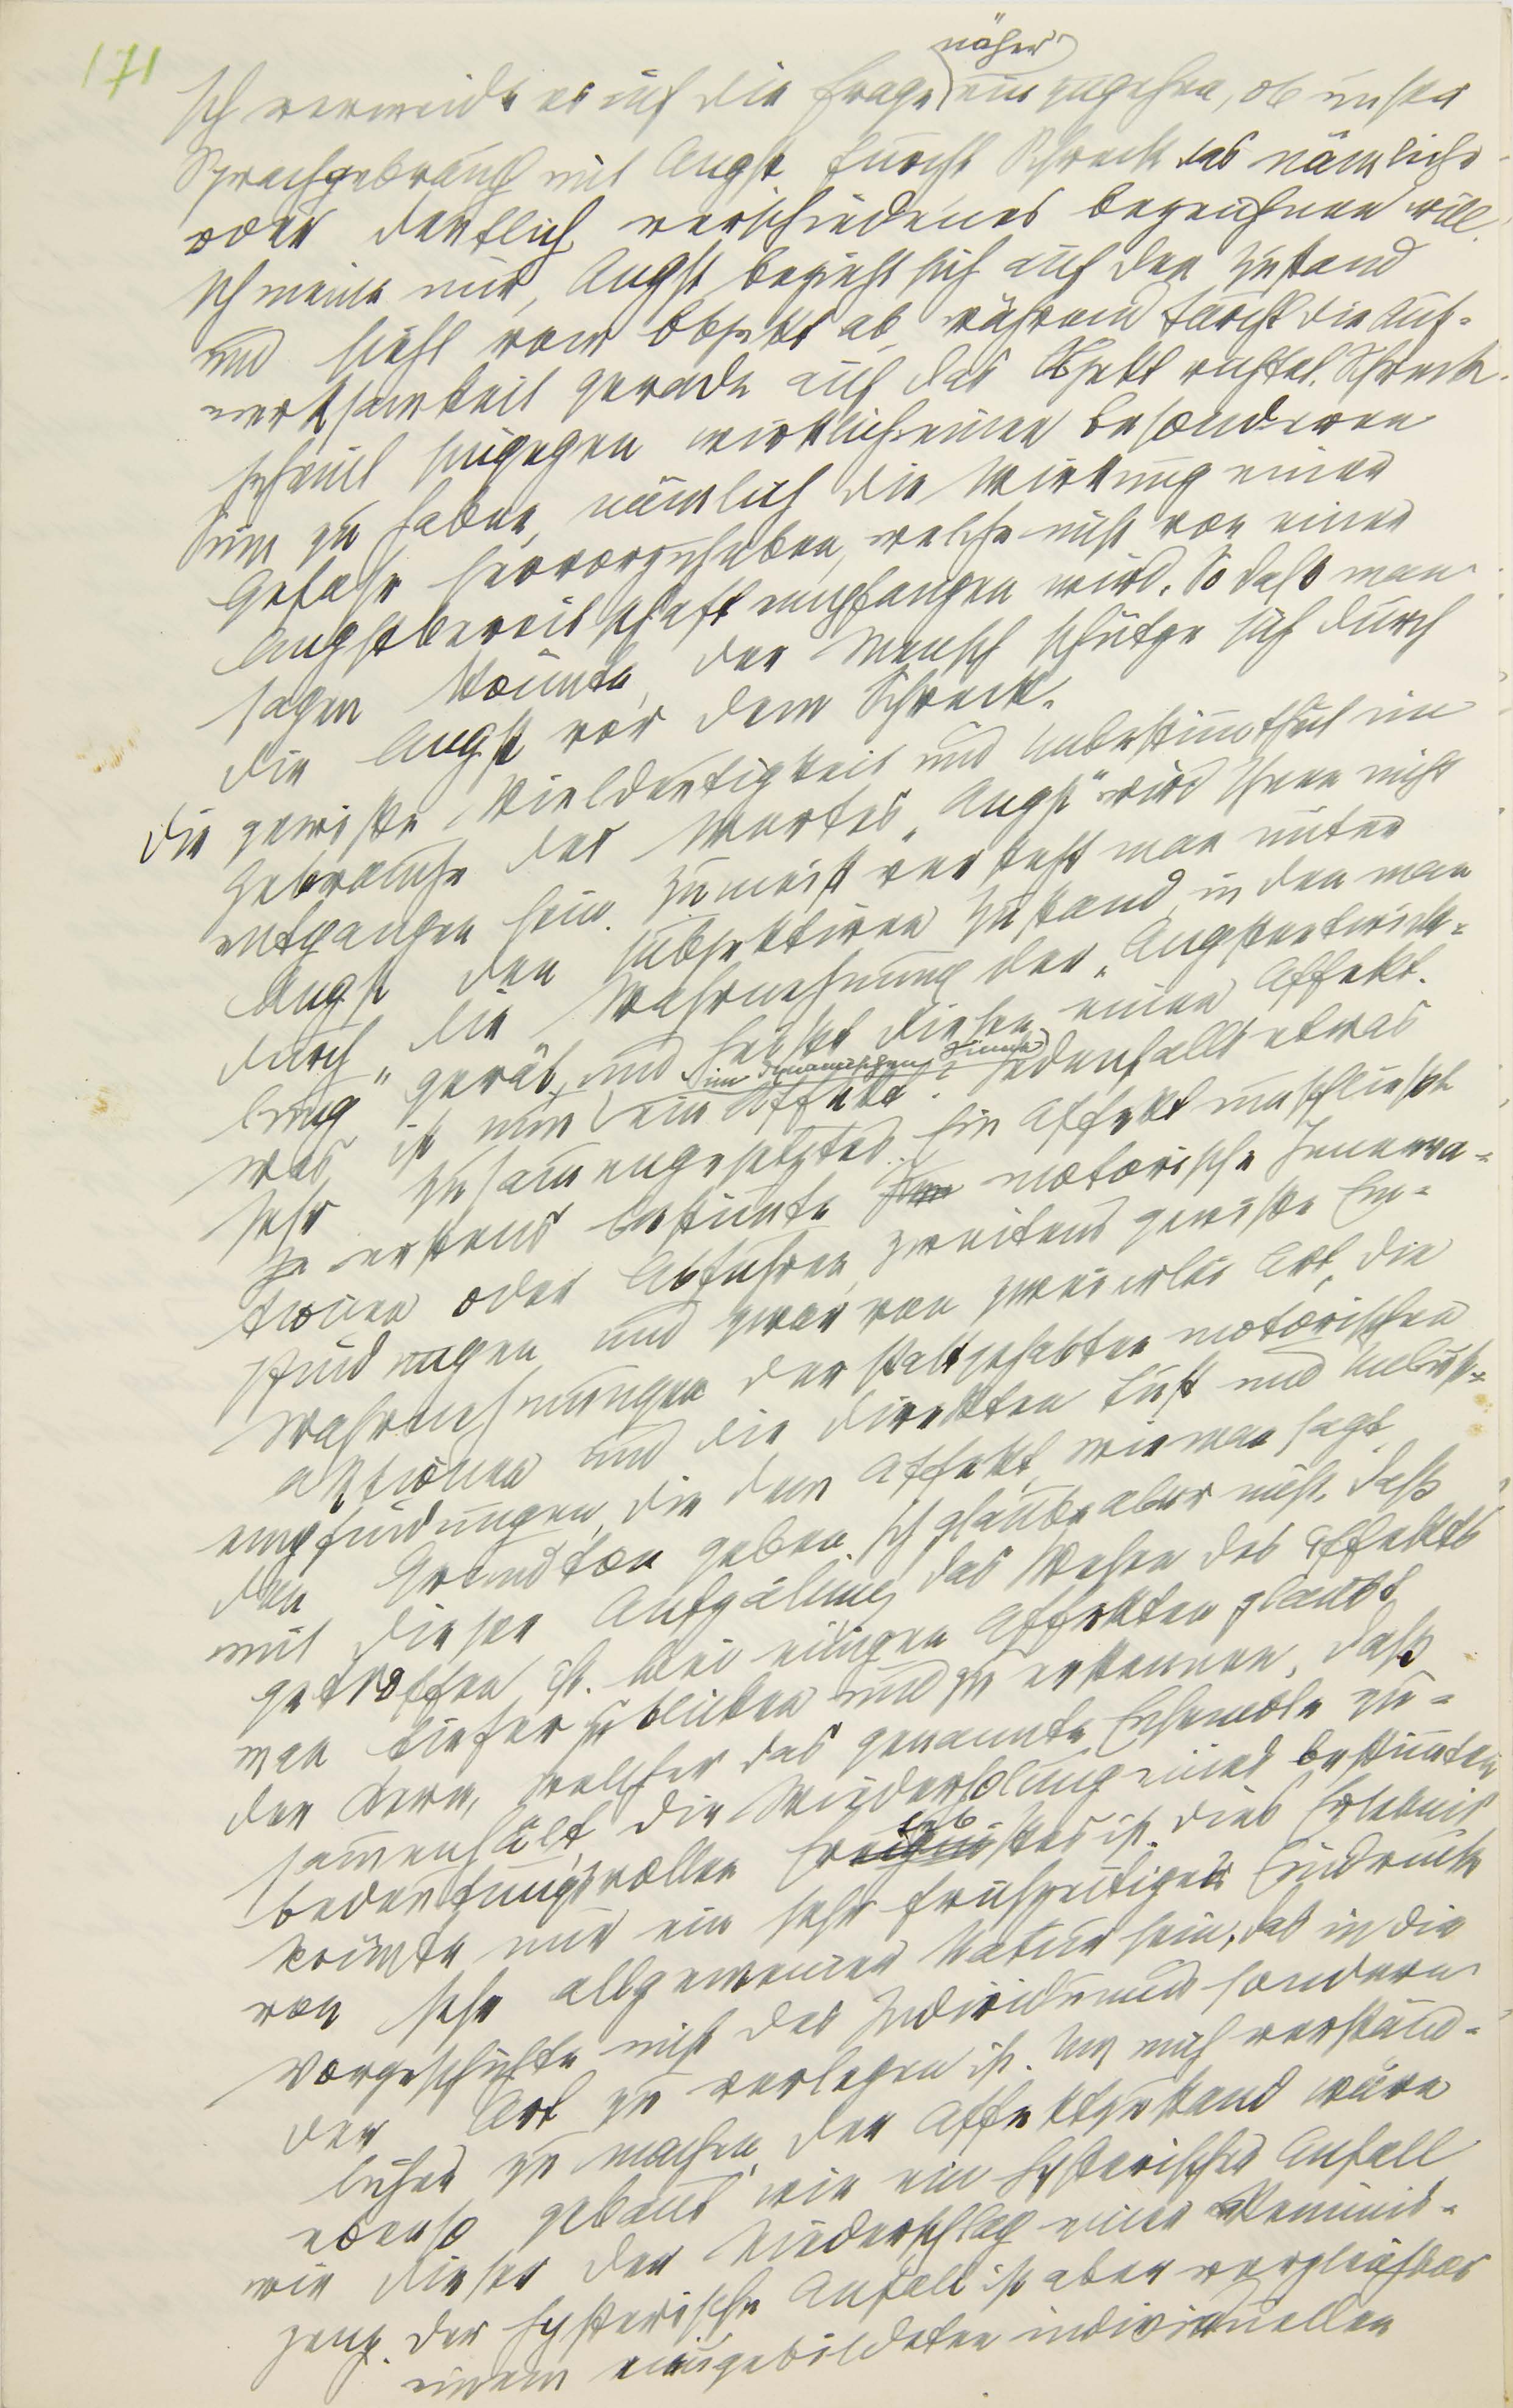 171
näher
Ich vermeide es auf die Frage einzugehen, ob unser
Sprachgebrauch mit Angst Furcht Schreck das nämliche
oder deutlich verschiedenes bezeichnen will.
Ich meine nur, Angst bezieht sich auf den Zustand
und sieht vom Objekt ab, während Furcht die Auf-
merksamkeit gerade auf das Objekt richtet. Schreck
scheint hingegen wirklich einen besonderen
Sinn zu haben, nämlich die Wirkung einer
Gefahr hervorzuheben, welche nicht von einer
Angstbereitschaft empfangen wird. So daß man
sagen könnte, der Mensch schütze sich durch
die Angst vor dem Schreck.
Die gewisse Vieldeutigkeit und Unbestimtheit im
Gebrauche des Wortes „Angst" wird Ihnen nicht
entgangen sein. Zumeist versteht man unter
Angst den subjektiven Zustand, in den man
durch die Wahrnehmung der „Angstentwick-
lung" gerät, und heißt diesen einen Affekt.
im dynamischen Sinne
Was ist nun ein Affekt? Jedenfalls etwas
sehr zusammengesetztes. Ein Affekt umschließt
erstens bestimte motorische Innerva-
tionen oder Abfuhren, zweitens gewisse Em-
pfindungen und zwar von zweierlei Art, die
Wahrnehmungen der stattgehabten motorischen
Aktionen und die direkten Lust und Unlust-
empfindungen, die dem Affekt, wie man sagt,
den Grundton geben. Ich glaube aber nicht, daß
mit dieser Aufzälung das Wesen des Affekts
getroffen ist. Bei einigen Affekten glaubt
man tiefer zu blicken und zu erkennen, daß
der Kern, welcher das genannte Ensemble zu-
sammenhält, die Wiederholung eines bestimten
bedeutungsvollen Erlebnisses ist. Dies Erlebnis
könnte nur ein sehr frühzeitiger Eindruck
von sehr allgemeiner Natur sein, das in die
Vorgeschichte nicht des Individuums sondern
der Art zu verlegen ist. Um mich verständ-
licher zu machen, der Affektzustand wäre
ebenso gebaut wie ein hysterischer Anfall,
wie dieser der Niederschlag einer Reminis-
zenz. Der hysterische Anfall ist aber vergleichbar
einem neugebildeten individuellen